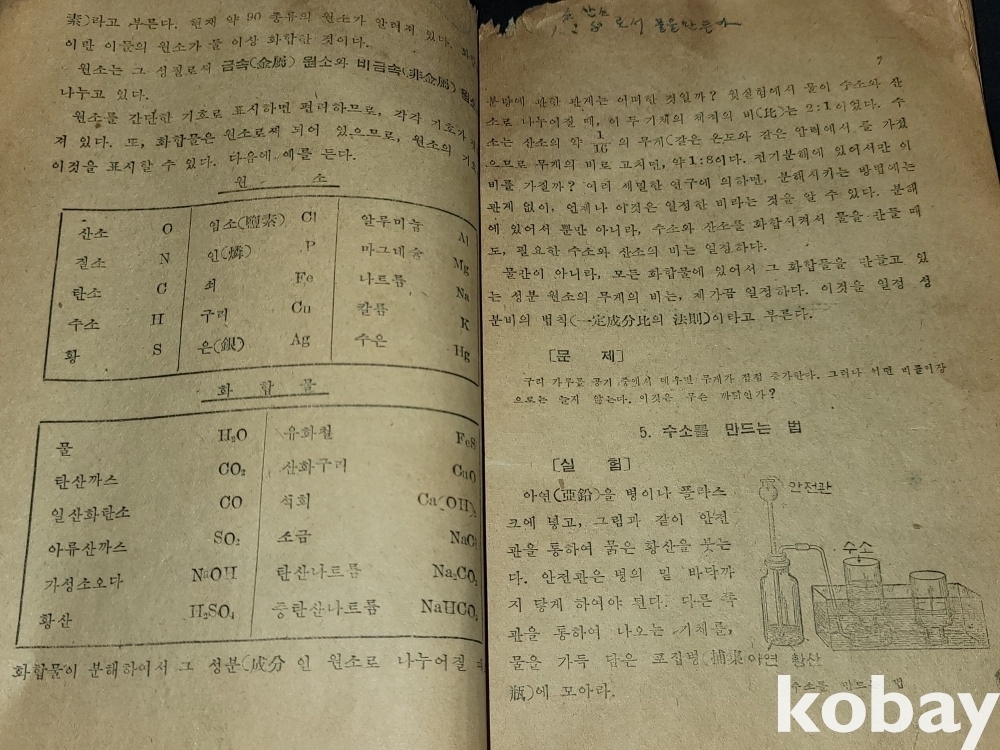 素)라고 부른다. 현재 약 90 종류의 원소가 알려져 있다. 화합
이란 이들의 원소가 둘 이상 화합한 것이다.
원소는 그 성질로써 금속(金屬) 원소와 비금속(非金屬) 원소
나누고 있다.
원소를 간단한 기호로 표시하면 편리하므로, 각각 기호가
져 있다. 또, 화합물은 원소로써 되어 있으므로, 원소의 기호
이것을 표시할 수 있다. 다음에 예를 든다.
원 소
산소 O 염소(鹽素) Cl 알루미늄 Al
질소 N 인(燐) P 마그네슘 Mg
탄소 C 쇠 Fe 나트륨 Na
수소 H 구리 Cu 칼륨 K
황 S 은(銀) Ag 수은 Hg
화 합 물
물 H₂O 유화철 FeS
탄산까스 CO₂ 산화구리 CuO
일산화탄소 CO 석회 Ca(OH)₂
아류산까스 SO₂ 소금 NaCl
가성소오다 NaOH 탄산나트륨 Na₂CO₃
황산 H₂SO₄ 중탄산나트륨 NaHCO₃
화합물이 분해하여서 그 성분(成分 인 원소로 나누어질 때
산소
로서 물을만든다
7
분량에 관한 관계는 어떠한 것일가? 윗실험에서 물이 수소와 산
소로 나누어질 때, 이 두 기체의 체적의 비(比)는 2:1이었다. 수
소는 산소의 약 1/16 의 무게(같은 온도와 같은 압력에서 를 가졌
으므로 무게의 비로 고치면, 약 1:8이다. 전기분해에 있어서만 이
비를 가질까? 여러 세밀한 연구에 의하면, 분해시키는 방법에는
관계 없이, 언제나 이것은 일정한 비라는 것을 알 수 있다. 분해
에 있어서 뿐만 아니라, 수소와 산소를 화합시켜서 물을 만들 때
도, 필요한 수소와 산소의 비는 일정하다.
물만이 아니라, 모든 화합물에 있어서 그 화합물을 만들고 있
는 성분 원소의 무게의 비는, 제가끔 일정하다. 이것을 일정 성
분비의 법칙(一定成分比의 法則)이라고 부른다.
[문 제]
구리 가루를 공기 중에서 태우면 무게가 점점 증가한다. 그러나 어떤 비률이상
으로는 늘지 않는다. 이것은 무슨 까닭인가?
5. 수소를 만드는 법
[실 험]
아연(亞鉛)을 병이나 플라스
크에 넣고, 그림과 같이 안전
관을 통하여 묽은 황산을 붓는
다. 안전관은 병의 밑 바닥까
지 닿게 하여야 된다. 다른 쪽
관을 통하여 나오는 기체를,
물을 가득 담은 포집병(捕集
瓶)에 모아라.
안전관
수소
아연 황산
수소를 만드는 법
kobay